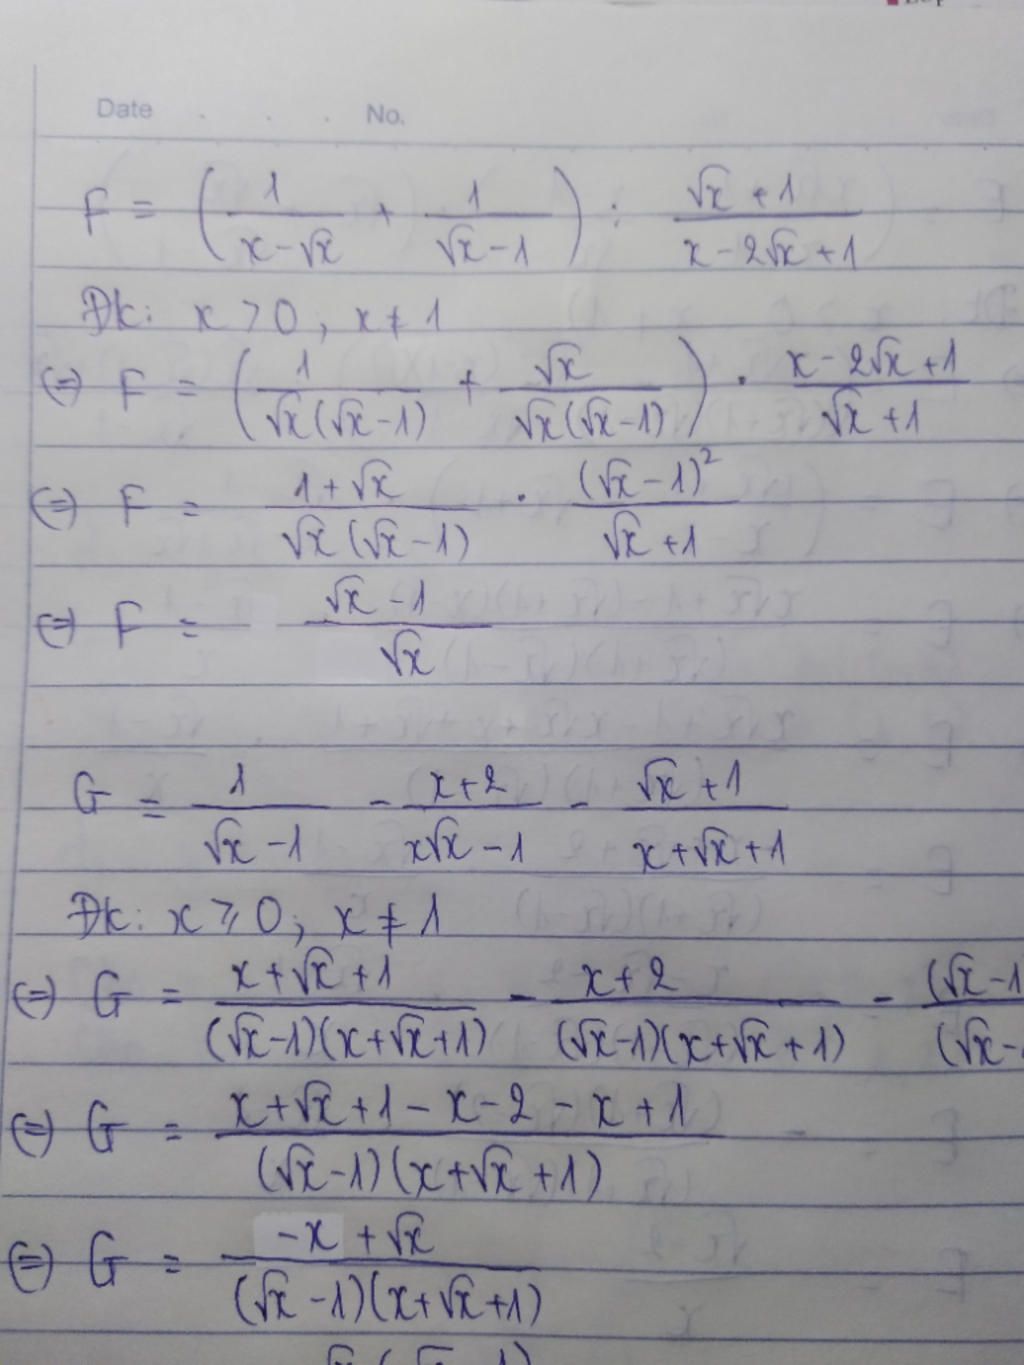 Date . . . No.
F = (1/(x-√x) + 1/(√x-1)) : (√x+1)/(x-2√x+1)
Đk: x > 0, x ≠ 1
(=) F = (1/(√x(√x-1)) + √x/(√x(√x-1))) . (x-2√x+1)/(√x+1)
(=) F = (1+√x)/(√x(√x-1)) . (√x-1)²/(√x+1)
(=) F = (√x-1)/√x
G = 1/(√x-1) - (x+2)/(x√x-1) - (√x+1)/(x+√x+1)
Đk: x ≥ 0; x ≠ 1
(=) G = (x+√x+1)/((√x-1)(x+√x+1)) - (x+2)/((√x-1)(x+√x+1)) - (√x-1/(√x-
(=) G = (x+√x+1-x-2-x+1)/((√x-1)(x+√x+1))
(=) G = (-x+√x)/((√x-1)(x+√x+1))